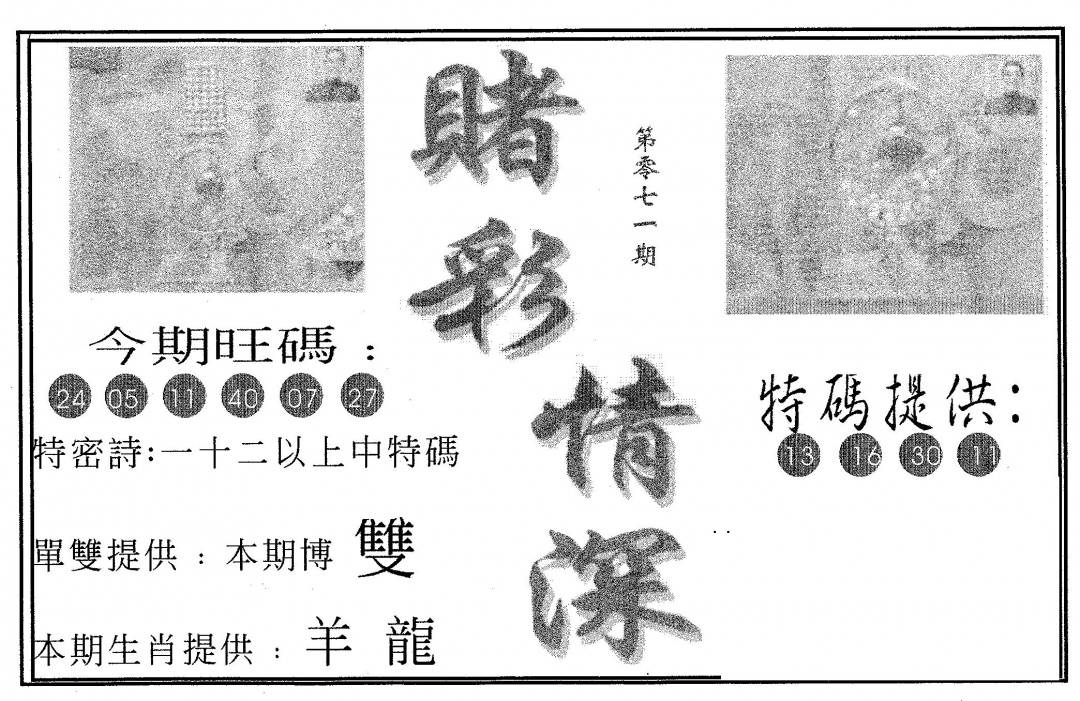 賭彩情深
第零七一期
今期旺碼：
24 05 11 40 07 27
特密詩:一十二以上中特碼
單雙提供：本期博 雙
本期生肖提供：羊 龍
特碼提供：
13 16 30 11